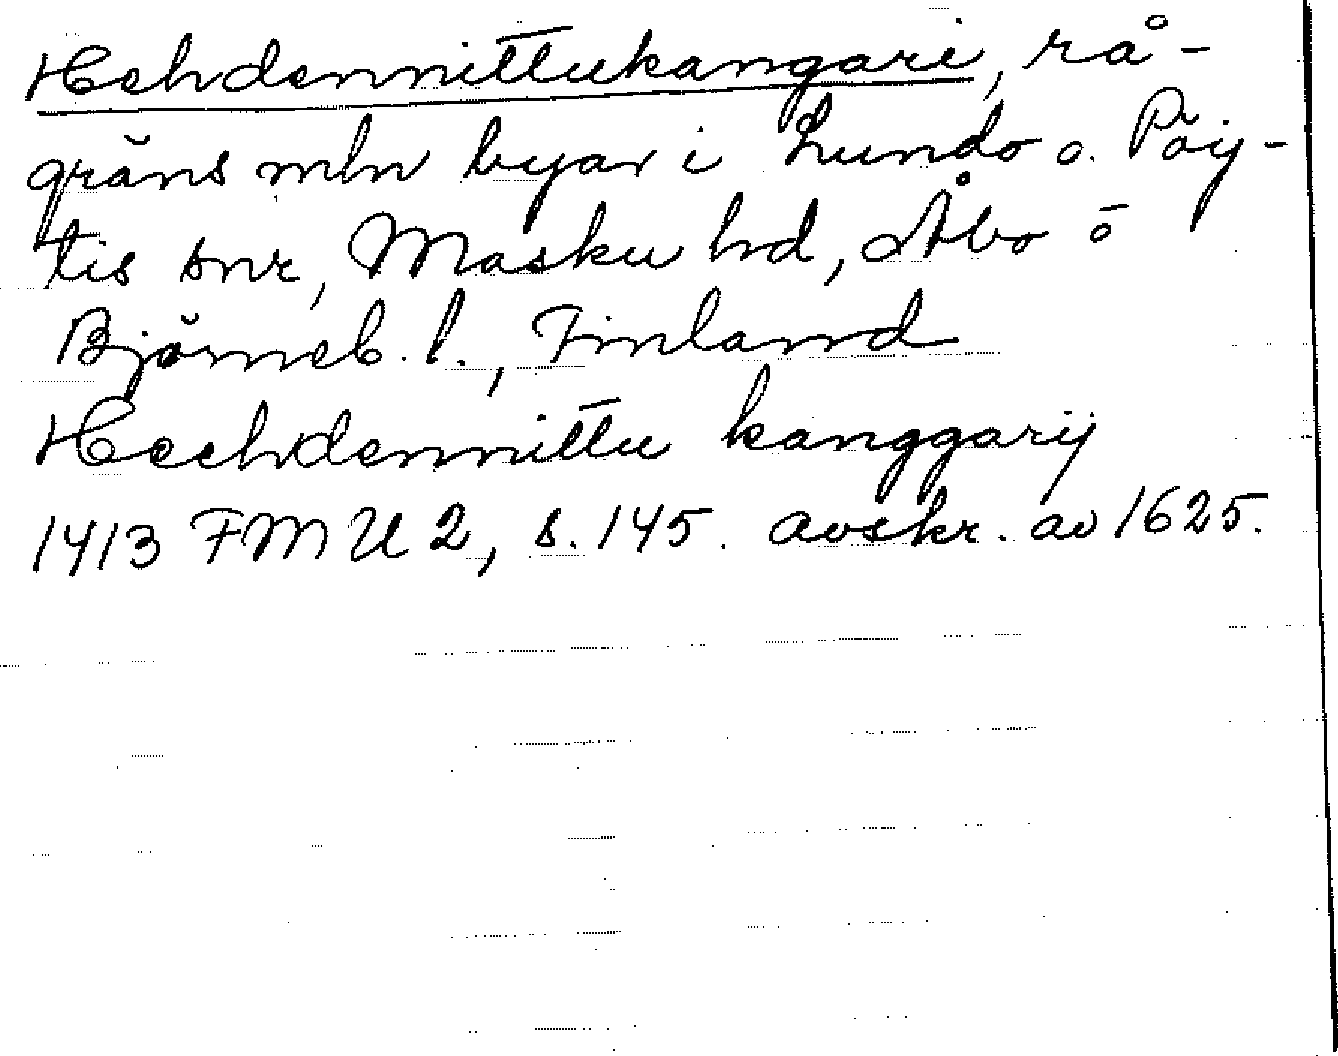 Hehdennittukangari, rå-
gräns mln byar i Lundo o. Pöy-
tis snr, Masku hd, Åbo o
Björneb. l., Finland
Heehdennittu kanggarij
1413 FMU 2, s. 145. avskr. av 1625.